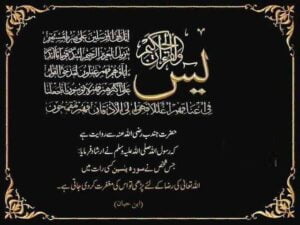 يس والقرآن الحكيم
إنك لمن المرسلين على صراط مستقيم
تنزيل العزيز الرحيم لتنذر قوما ما أنذر
آباؤهم فهم غافلون لقد حق القول
على أكثرهم فهم لا يؤمنون إنا جعلنا
في أعناقهم أغلالا فهي إلى الأذقان فهم مقمحون
حضرت جندب رضی اللہ عنہ سے روایت ہے
کہ رسول اللہ صلی اللہ علیہ وسلم نے ارشاد فرمایا:
جس شخص نے سورہ یٰسین کسی رات میں
اللہ تعالیٰ کی رضا کے لئے پڑھی تو اس کی مغفرت کر دی جاتی ہے۔
(ابن حبان)